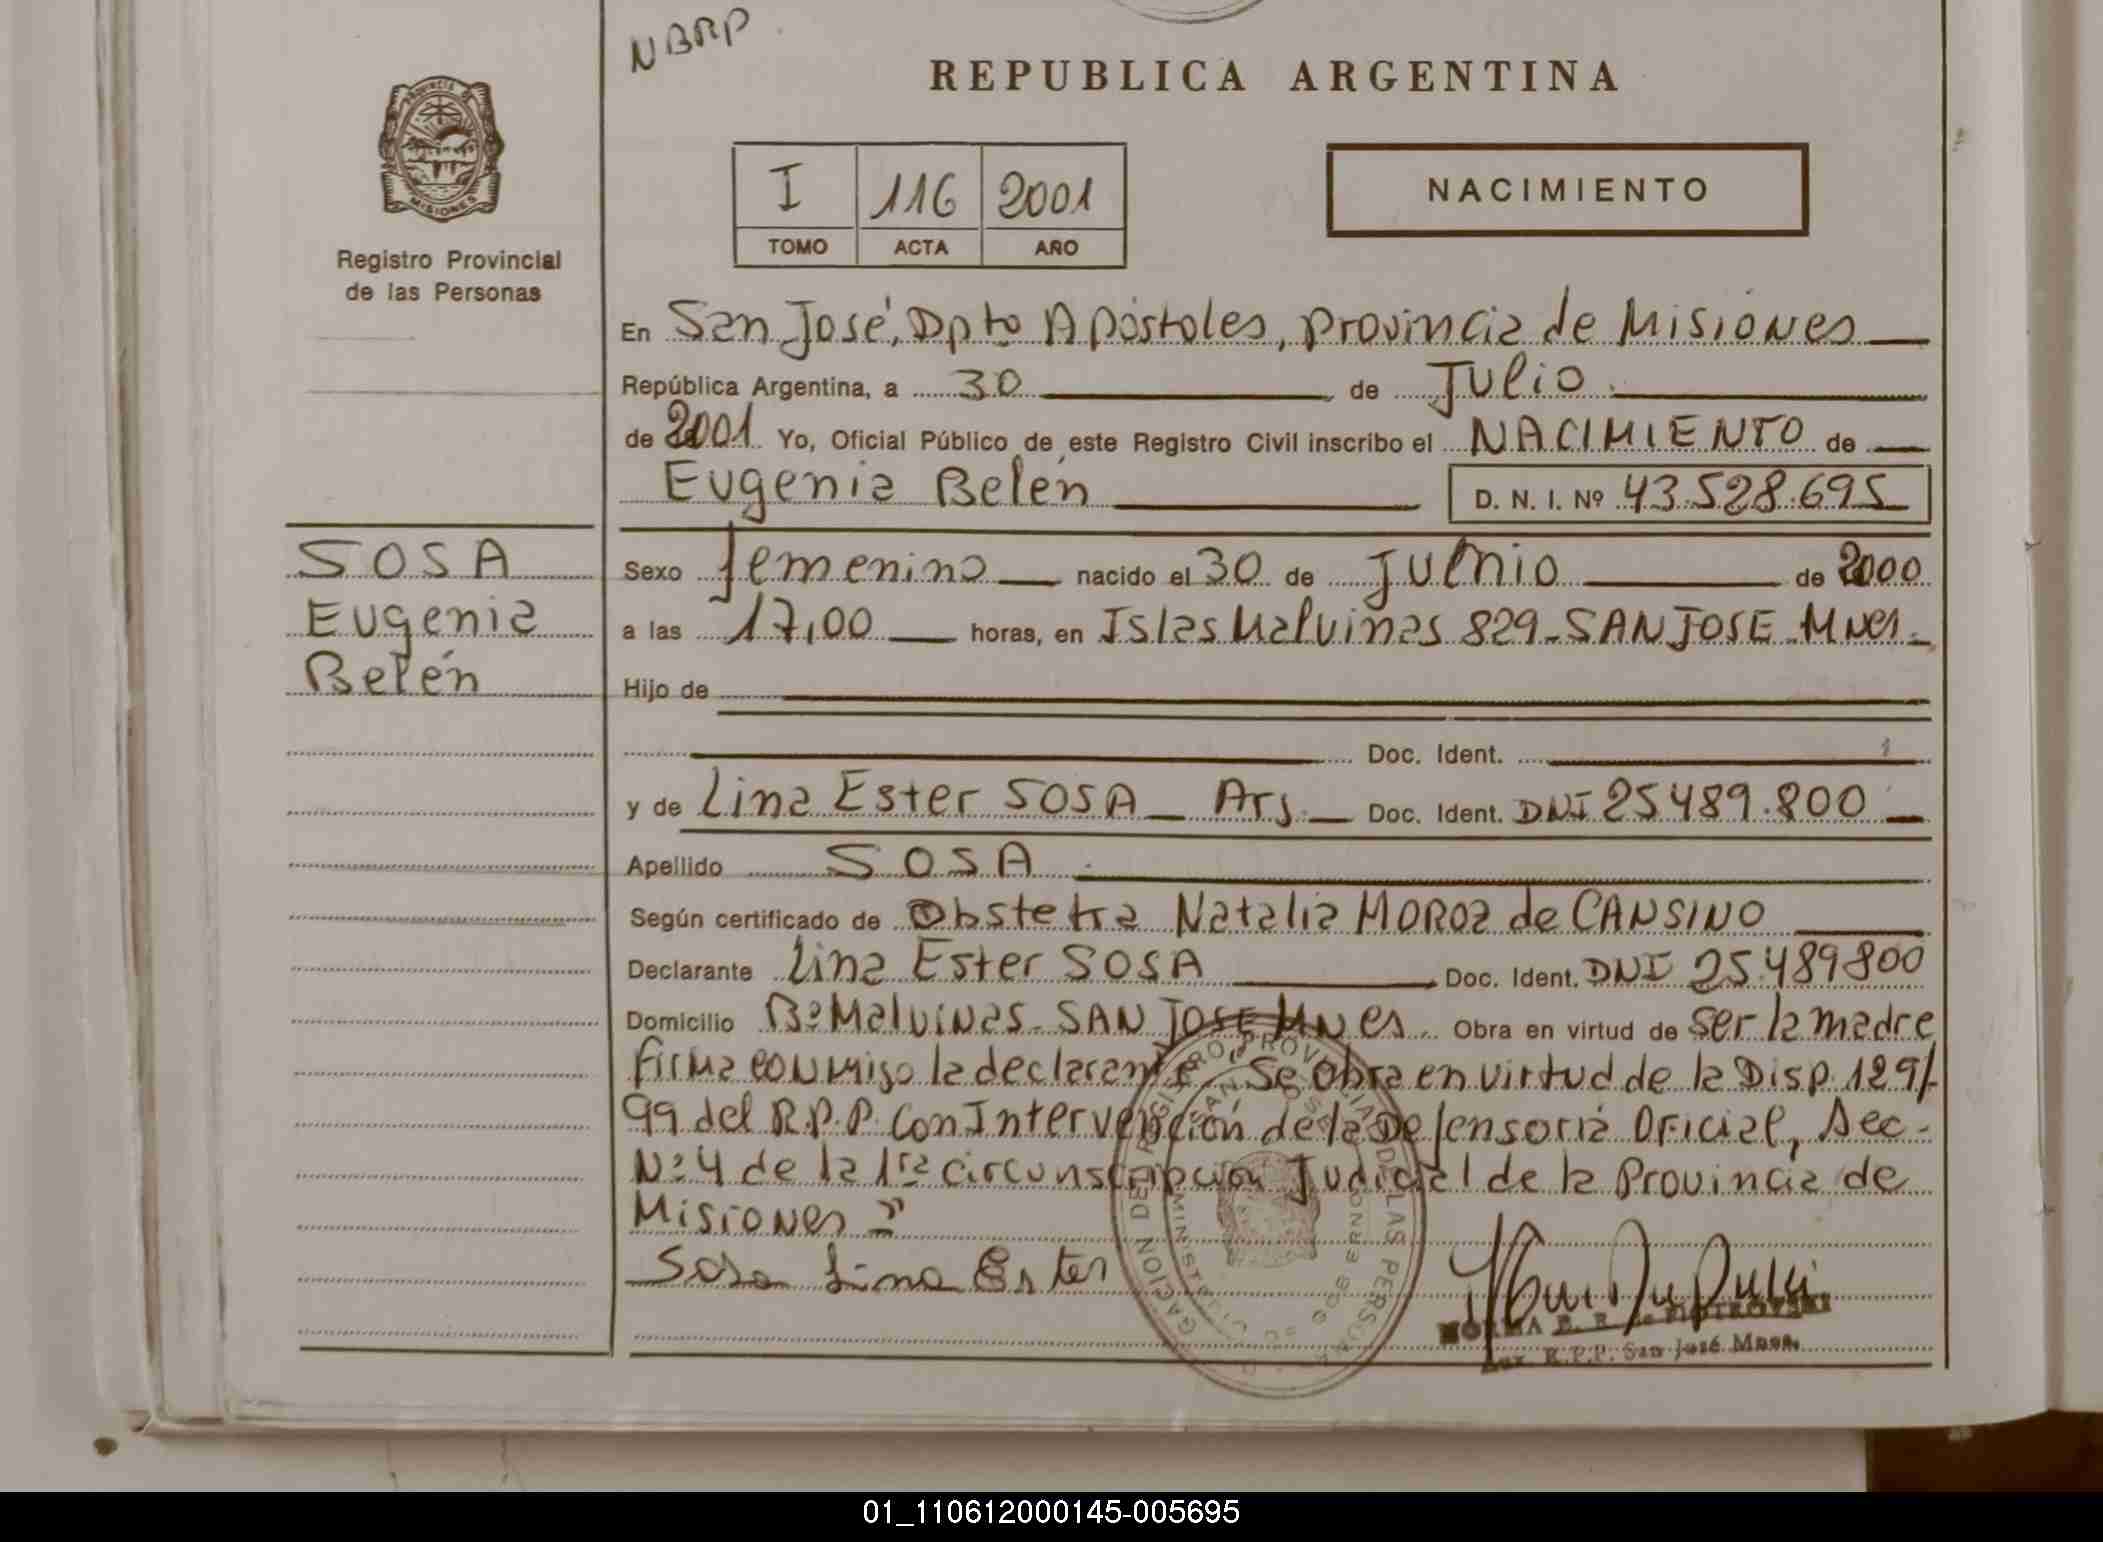 NBRP
REPUBLICA ARGENTINA
PROVINCIA DE
MISIONES
Registro Provincial
de las Personas
I 116 2001
TOMO ACTA AÑO
NACIMIENTO
En San José, Dpto Apóstoles, Provincia de Misiones
República Argentina, a 30 de Julio
de 2001 Yo, Oficial Público de este Registro Civil inscribo el NACIMIENTO de
Eugenia Belén D. N. I. Nº 43.528.695
SOSA
Eugenia
Belén
Sexo femenino nacido el 30 de de 2000
a las 17,00 horas, en Islas Malvinas 829-SAN JOSE Mnes.
Hijo de
Doc. Ident.
y de Lina Ester SOSA Arg. Doc. Ident. DNI 25489.800
Apellido SOSA
Según certificado de Obstetra Natalia MOROZ de CANSINO
Declarante Lina Ester SOSA Doc. Ident. DNI 25.489800
Domicilio Bº Malvinas - SAN JOSE Mnes Obra en virtud de ser la madre
firma conmigo la declarante, Se obra en virtud de la Disp 129/
99 del R.P.P. con Intervención de la Defensoria Oficial, Sec.
Nº 4 de la 1ra circunscripción Judicial de la Provincia de
Misiones
Sosa Lina Ester
NORMA B. R. de PIOTROVSKI
Aux. R.P.P. San José Mnes.
01_110612000145-005695